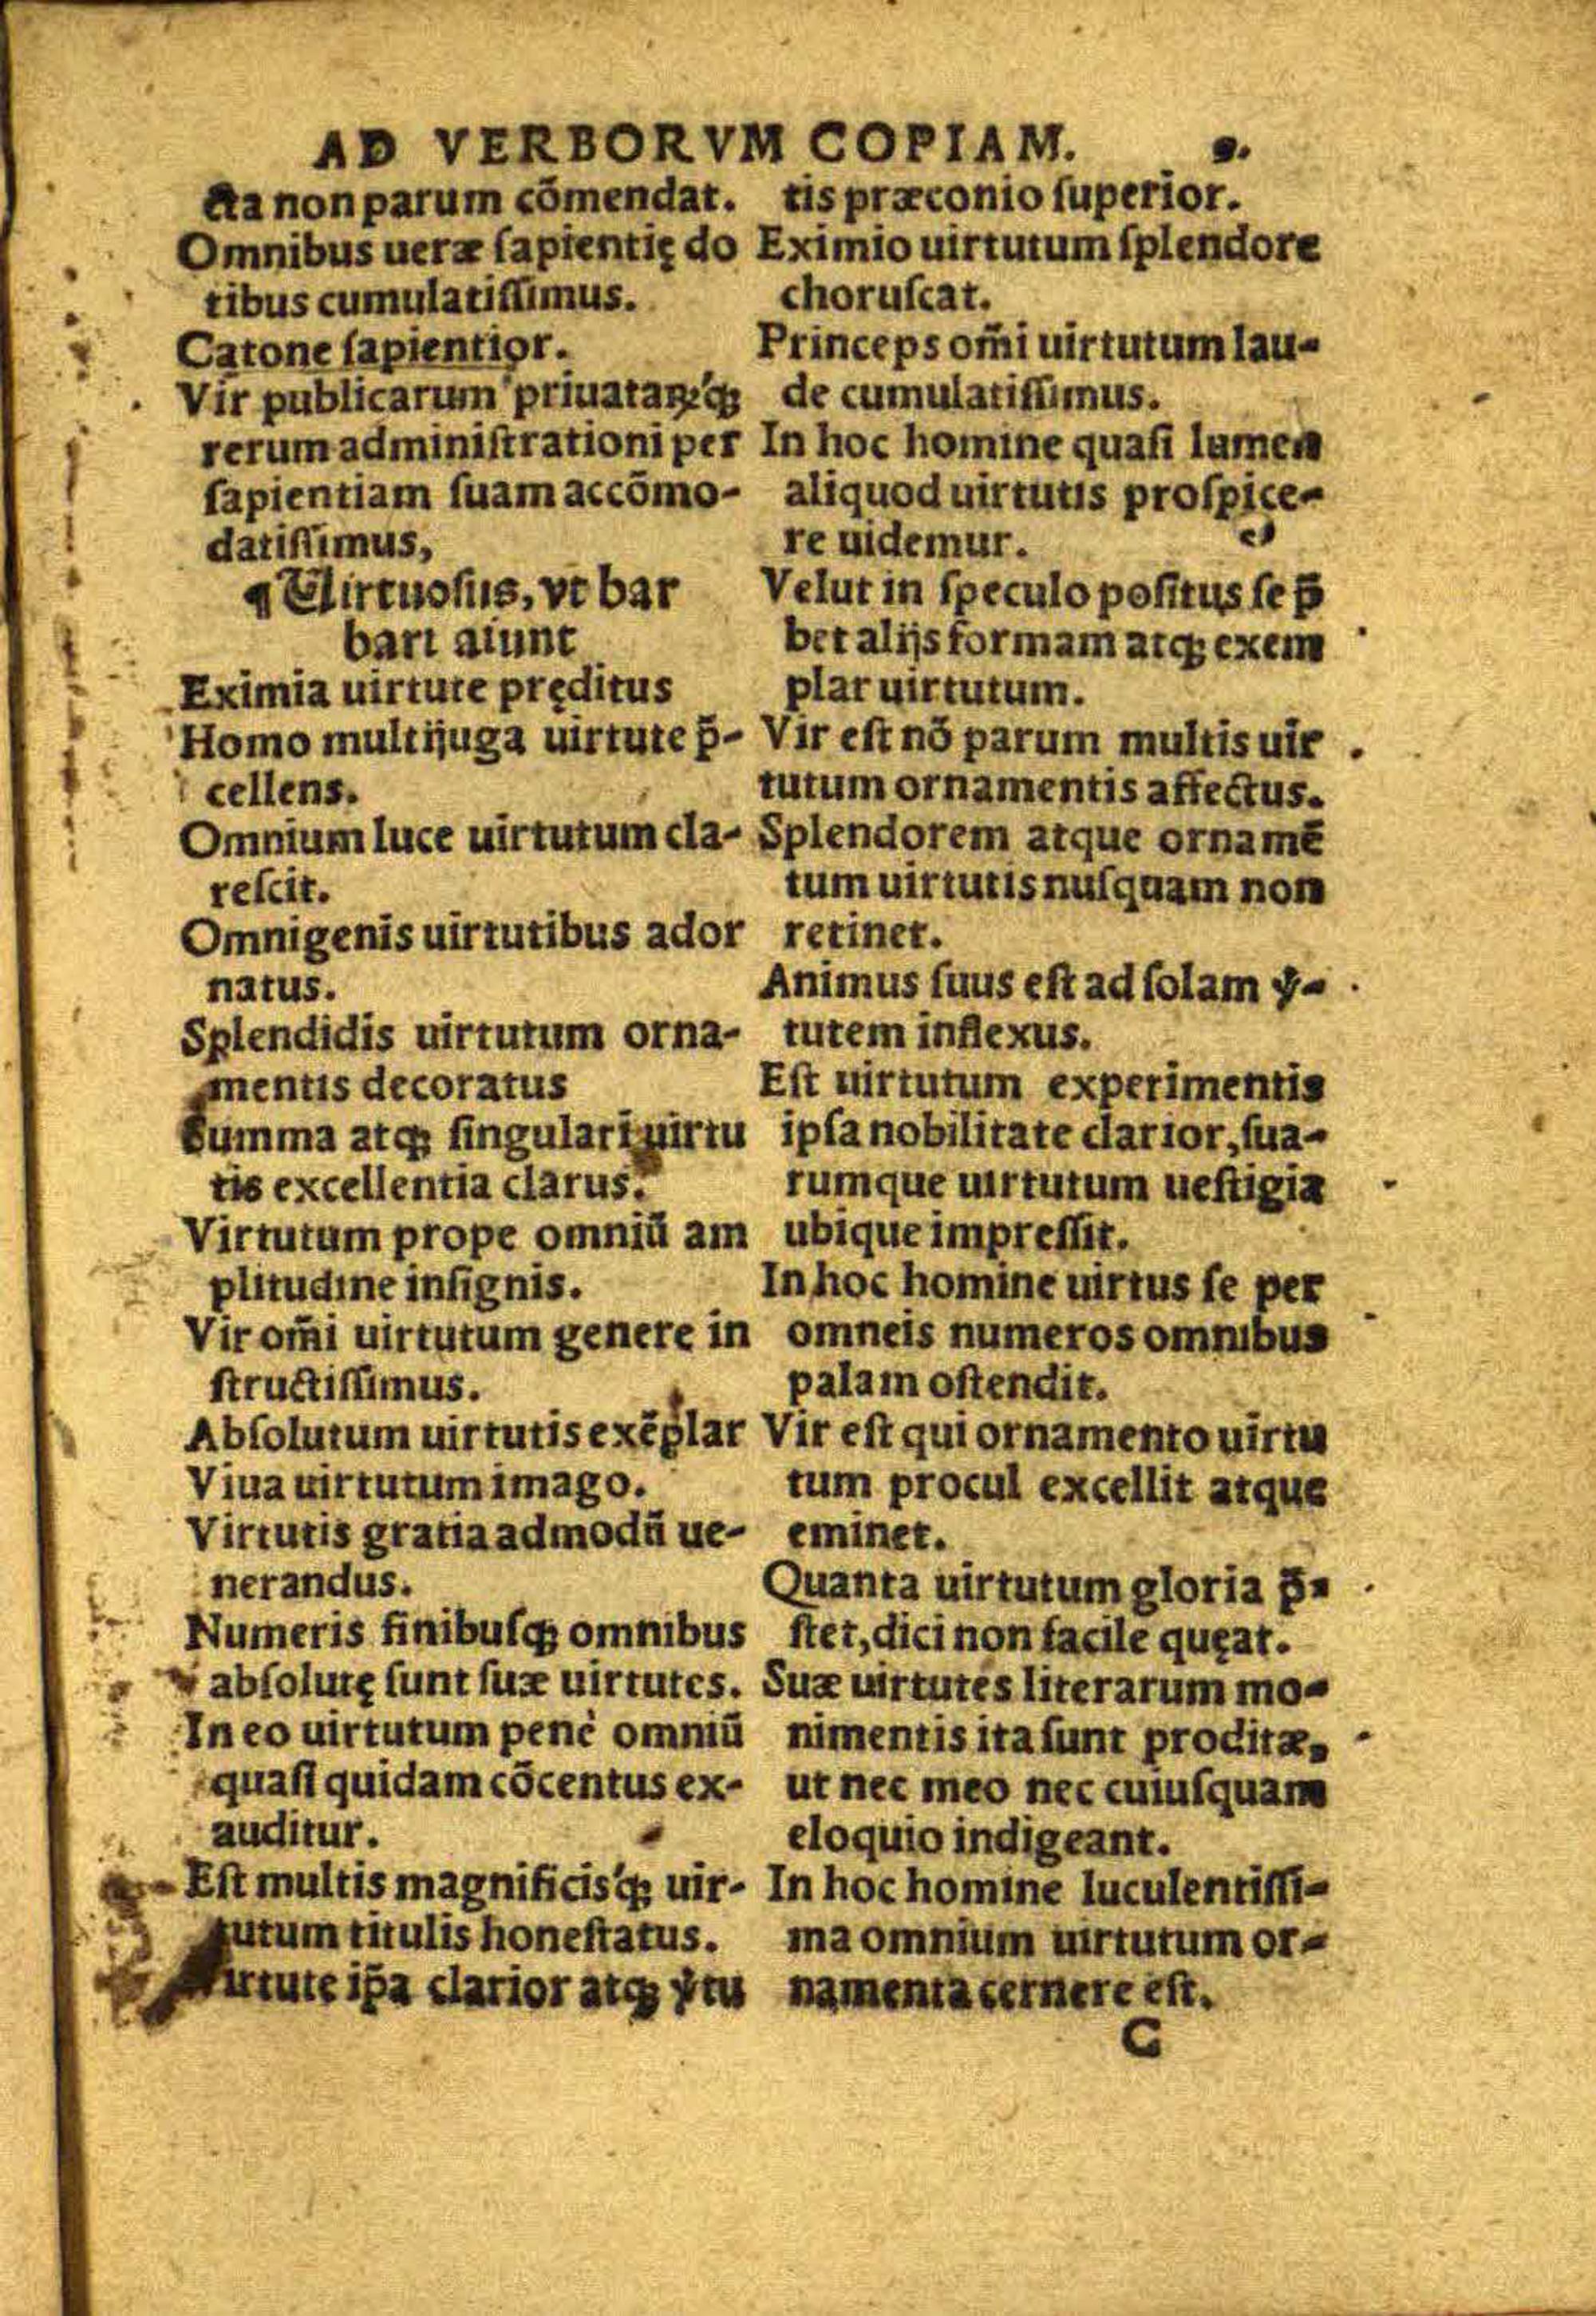 AD VERBORVM COPIAM. 9.
cta non parum cõmendat.
Omnibus ueræ ſapientię do
tibus cumulatiſſimus.
Catone ſapientior.
Vir publicarum priuataꝝq́ꝫ
rerum adminiſtrationi per
ſapientiam ſuam accõmo-
datiſſimus,
¶ Virtuoſus, vt bar
bari aiunt
Eximia uirtute pręditus
Homo multĳuga uirtute p̃-
cellens.
Omnium luce uirtutum cla-
reſcit.
Omnigenis uirtutibus ador
natus.
Splendidis uirtutum orna-
mentis decoratus
Summa atqꝫ ſingulari uirtu
tis excellentia clarus.
Virtutum prope omniũ am
plitudine inſignis.
Vir om̃i uirtutum genere in
ſtructiſſimus.
Abſolutum uirtutis exẽplar
Viua uirtutum imago.
Virtutis gratia admodũ ue-
nerandus.
Numeris finibuſqꝫ omnibus
abſolutę ſunt ſuæ uirtutes.
In eo uirtutum penè omniũ
quaſi quidam cõcentus ex-
auditur.
Eſt multis magnificisq́ꝫ uir-
tutum titulis honeſtatus.
Virtute ip̃a clarior atqꝫ v̓tu
tis præconio ſuperior.
Eximio uirtutum ſplendore
choruſcat.
Princeps om̃i uirtutum lau-
de cumulatiſſimus.
In hoc homine quaſi lumen
aliquod uirtutis proſpice-
re uidemur.
Velut in ſpeculo poſitus ſe p̃
bet alĳs formam atqꝫ exem
plar uirtutum.
Vir eſt nõ parum multis uir
tutum ornamentis affectus.
Splendorem atque ornamẽ
tum uirtutis nuſquam non
retinet.
Animus ſuus eſt ad ſolam v̓-
tutem inflexus.
Eſt uirtutum experimentis
ipſa nobilitate clarior, ſua-
rumque uirtutum ueſtigia
ubique impreſſit.
In hoc homine uirtus ſe per
omneis numeros omnibus
palam oſtendit.
Vir eſt qui ornamento uirtu
tum procul excellit atque
eminet.
Quanta uirtutum gloria p̃-
ſtet, dici non facile quęat.
Suæ uirtutes literarum mo-
nimentis ita ſunt proditæ,
ut nec meo nec cuiuſquam
eloquio indigeant.
In hoc homine luculentiſſi-
ma omnium uirtutum or-
namenta cernere eſt.
C